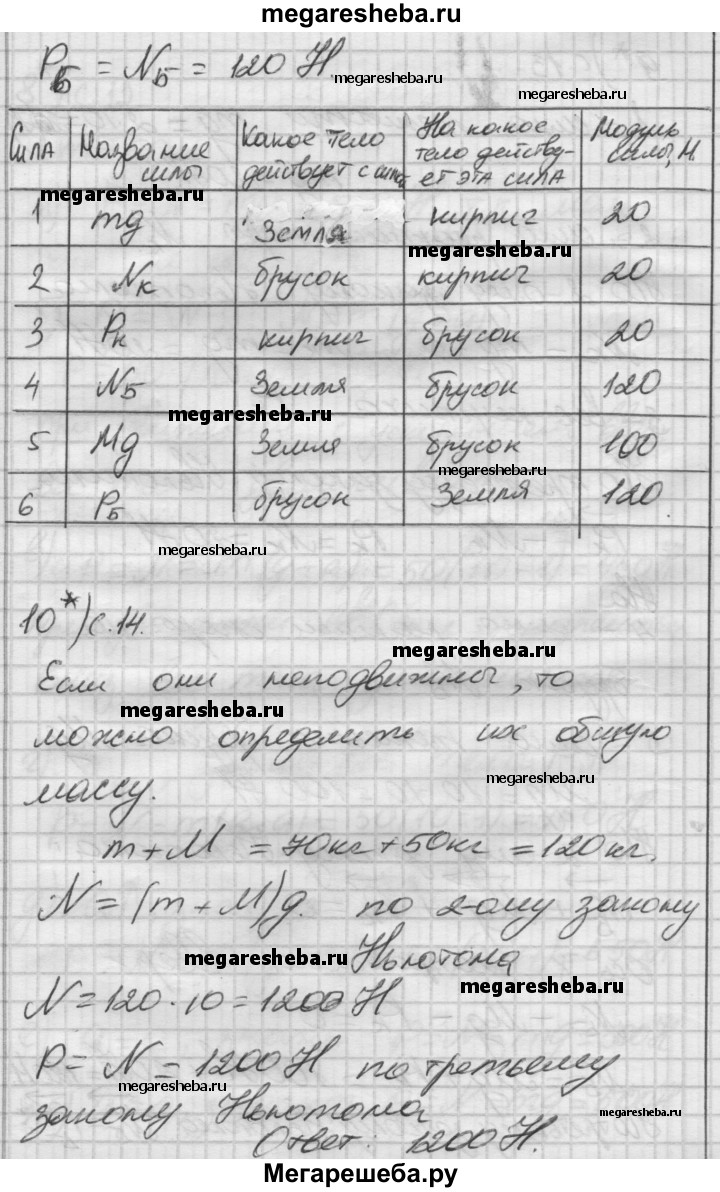 megaresheba.ru
P_Б = N_Б = 120 Н.
megaresheba.ru
megaresheba.ru
Сила | Название силы | Какое тело действует с силой | На какое тело действует эта сила | Модуль силы, Н.
megaresheba.ru
1 | mg | Земля | кирпич | 20
megaresheba.ru
2 | N_к | брусок | кирпич | 20
3 | P_к | кирпич | брусок | 20
4 | N_Б | Земля | брусок | 120
megaresheba.ru
5 | Mg | Земля | брусок | 100
megaresheba.ru
6 | P_Б | брусок | Земля | 120
megaresheba.ru
10*) с.14.
megaresheba.ru
Если они неподвижны, то
megaresheba.ru
можно определить их общую
megaresheba.ru
массу.
m + M = 70кг + 50кг = 120кг.
N = (m + M)g. по 2-ому закону
megaresheba.ru
Ньютона
megaresheba.ru
N = 120 · 10 = 1200 Н
P = N = 1200 Н по третьему
megaresheba.ru
закону Ньютона
megaresheba.ru
Ответ: 1200 Н.
Мегарешеба.ру